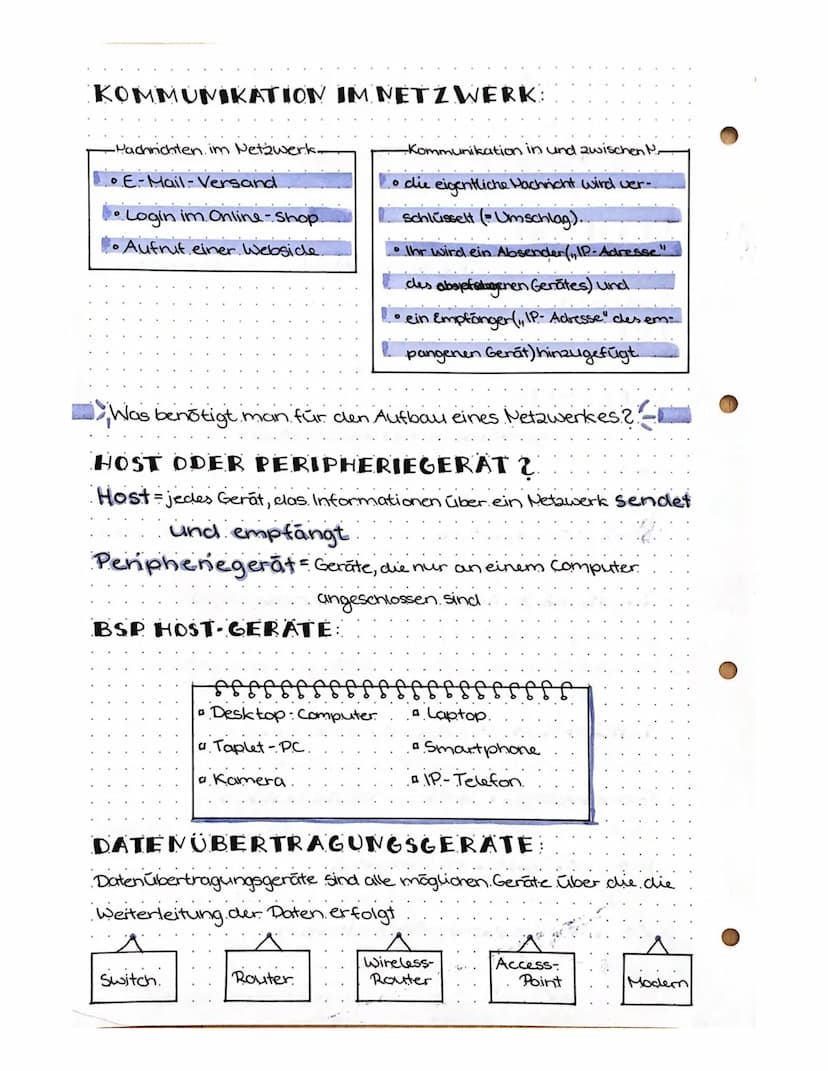 KOMMUNIKATION IM NETZWERK:
Nachrichten im Netzwerk
• E-Mail-Versand
• Login im Online-Shop
• Aufruf einer Webside
Kommunikation in und zwischen N.
• die eigentliche Nachricht wird ver-
schlüsselt (= Umschlag).
• Ihr wird ein Absender („IP-Adresse"
des Gerätes) und
• ein Empfänger („IP-Adresse" des em-
pangenen Gerät) hinzugefügt
Was benötigt man für den Aufbau eines Netzwerkes?
HOST ODER PERIPHERIEGERÄT?
Host = jedes Gerät, das Informationen über ein Netzwerk sendet
und empfängt
Peripheriegerät = Geräte, die nur an einem Computer
angeschlossen sind
BSP HOST-GERÄTE:
▫ Desktop-Computer ▫ Laptop
▫ Taplet-PC ▫ Smartphone
▫ Kamera ▫ IP-Telefon
DATENÜBERTRAGUNGSGERÄTE:
Datenübertragungsgeräte sind alle möglichen Geräte über die die
Weiterleitung der Daten erfolgt
Switch
Router
Wireless-
Router
Access-
Point
Modern